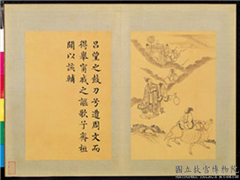 呂望之鼓刀兮遭周文而
得舉甯戚之謳歌兮齊桓
聞以該輔
國立故宮博物院